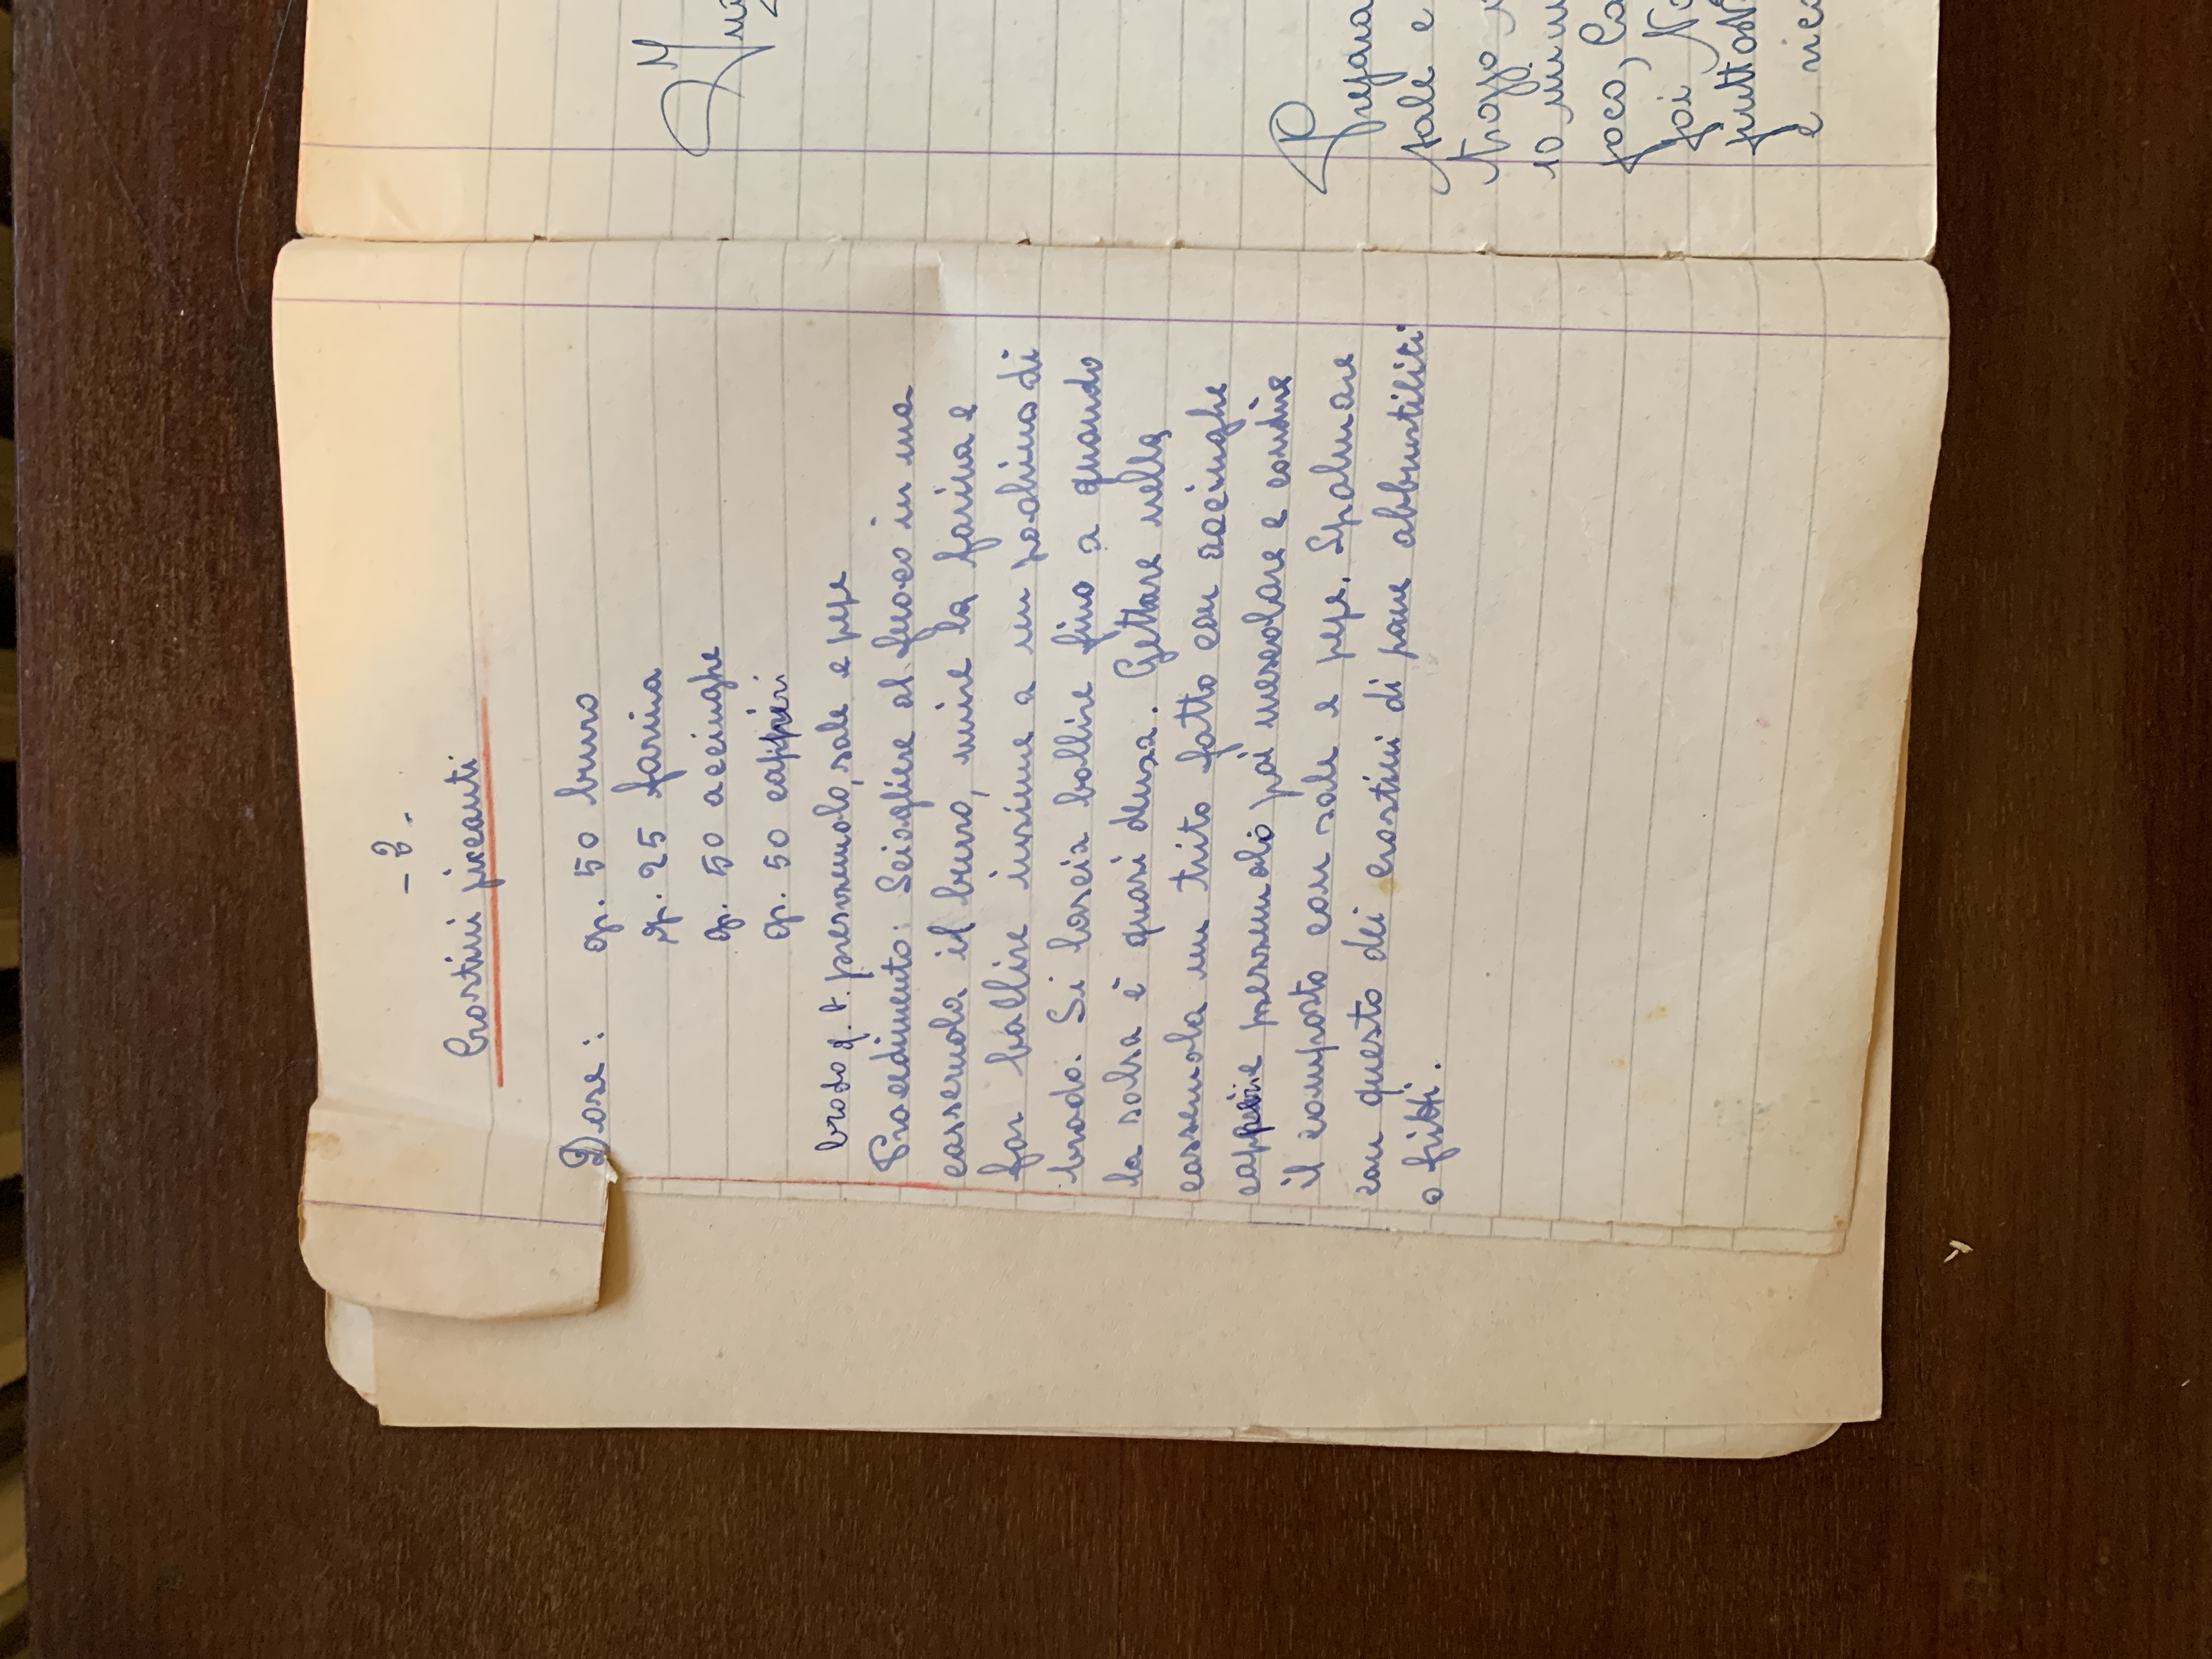 - 2 -
Crostini piccanti
Dose: gr. 50 burro
gr. 25 farina
gr. 50 acciughe
gr. 50 capperi
brodo q. b. prezzemolo, sale e pepe
Procedimento: Sciogliere al fuoco in una
casseruola il burro, unire la farina e
far bollire insieme a un pochino di
brodo. Si lascia bollire fino a quando
la salsa è quasi densa. Gettare nella
casseruola un trito fatto con acciughe
capperi e prezzemolo poi mescolare e condire
il composto con sale e pepe. Spalmare
con questo dei crostini di pane abbrustiliti
o fritti.
Prepara
sale e
10
poco, Ca
poi No
piuttost
e